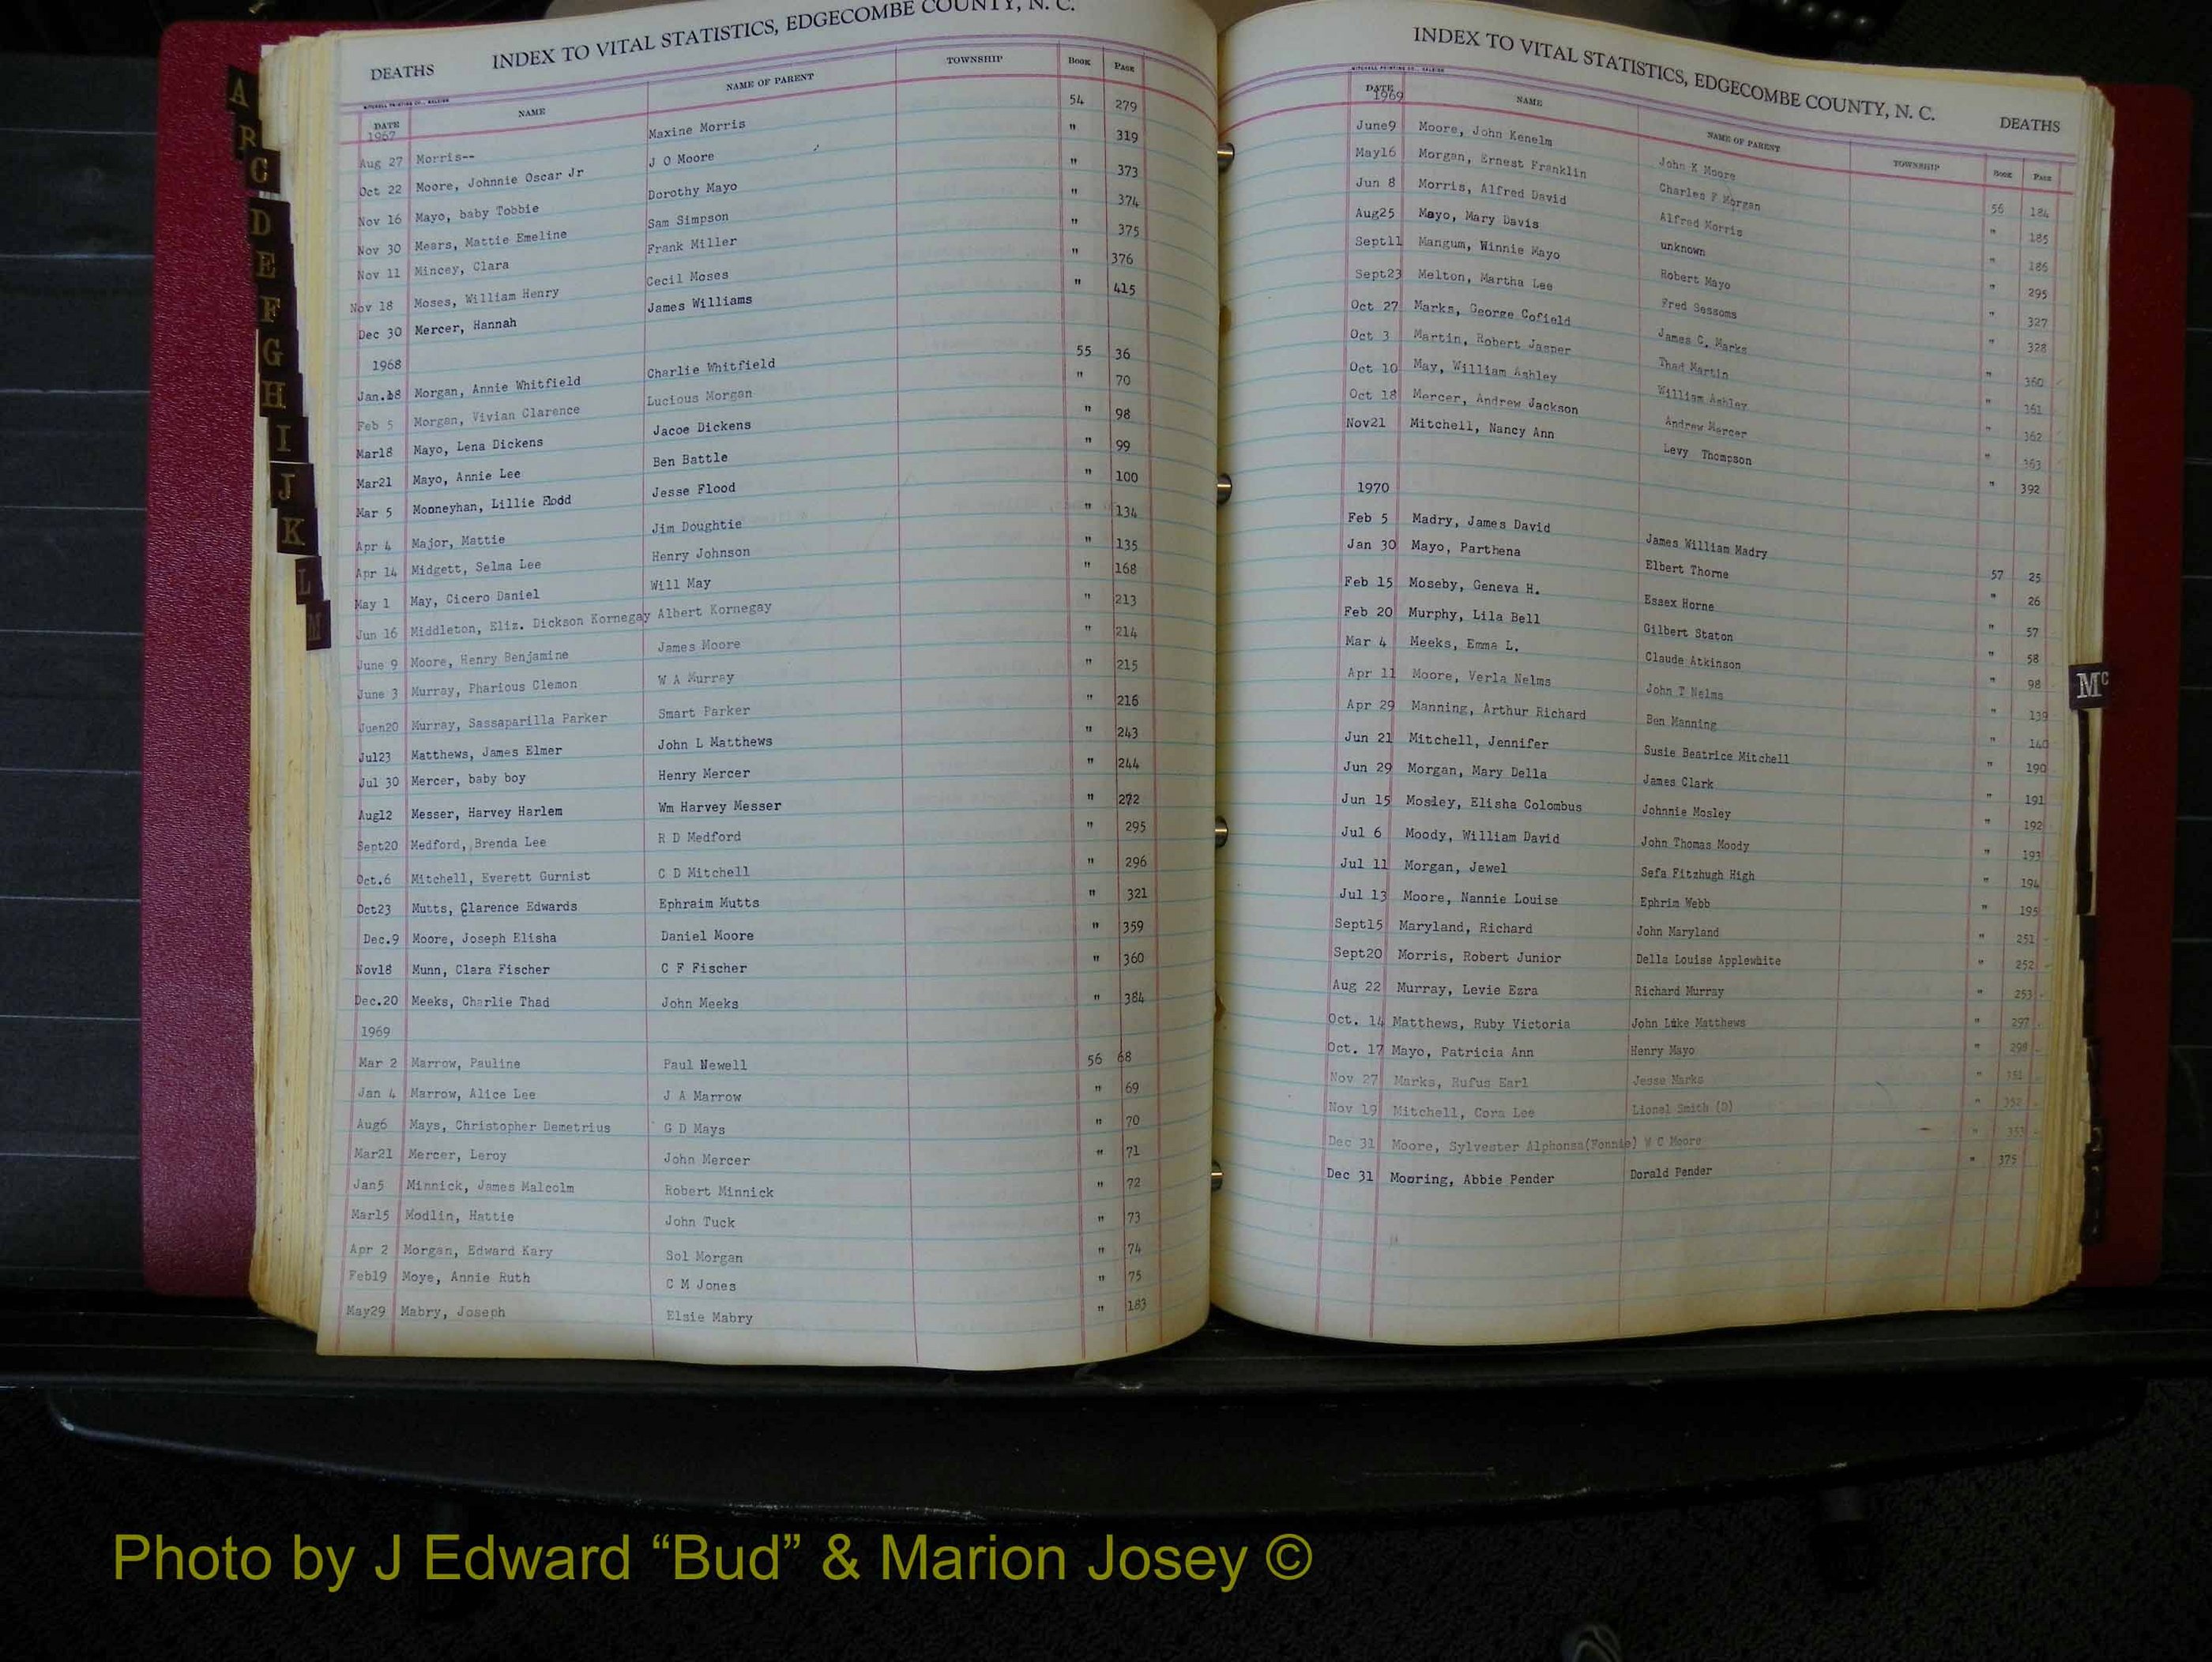 INDEX TO VITAL STATISTICS, EDGECOMBE COUNTY, N. C.
DEATHS
MITCHELL PRINTING CO., RALEIGH
DATE NAME NAME OF PARENT TOWNSHIP BOOK PAGE
1967
Aug 27 Morris-- Maxine Morris 54 279
Oct 22 Moore, Johnnie Oscar Jr J O Moore " 319
Nov 16 Mayo, baby Tobbie Dorothy Mayo " 373
Nov 30 Mears, Mattie Emeline Sam Simpson " 374
Nov 11 Mincey, Clara Frank Miller " 375
Nov 18 Moses, William Henry Cecil Moses " 376
Dec 30 Mercer, Hannah James Williams " 415
1968
Jan.18 Morgan, Annie Whitfield Charlie Whitfield 55 36
Feb 5 Morgan, Vivian Clarence Lucious Morgan " 70
Mar18 Mayo, Lena Dickens Jacoe Dickens " 98
Mar21 Mayo, Annie Lee Ben Battle " 99
Mar 5 Mooneyhan, Lillie Flodd Jesse Flood " 100
Apr 4 Major, Mattie Jim Doughtie " 134
Apr 14 Midgett, Selma Lee Henry Johnson " 135
May 1 May, Cicero Daniel Will May " 168
Jun 16 Middleton, Eliz. Dickson Kornegay Albert Kornegay " 213
June 9 Moore, Henry Benjamine James Moore " 214
June 3 Murray, Pharious Clemon W A Murray " 215
Juen20 Murray, Sassaparilla Parker Smart Parker " 216
Jul23 Matthews, James Elmer John L Matthews " 243
Jul 30 Mercer, baby boy Henry Mercer " 244
Aug12 Messer, Harvey Harlem Wm Harvey Messer " 272
Sept20 Medford, Brenda Lee R D Medford " 295
Oct.6 Mitchell, Everett Gurnist C D Mitchell " 296
Oct23 Mutts, Clarence Edwards Ephraim Mutts " 321
Dec.9 Moore, Joseph Elisha Daniel Moore " 359
Nov18 Munn, Clara Fischer C F Fischer " 360
Dec.20 Meeks, Charlie Thad John Meeks " 384
1969
Mar 2 Marrow, Pauline Paul Newell 56 68
Jan 4 Marrow, Alice Lee J A Marrow " 69
Aug6 Mays, Christopher Demetrius G D Mays " 70
Mar21 Mercer, Leroy John Mercer " 71
Jan5 Minnick, James Malcolm Robert Minnick " 72
Mar15 Modlin, Hattie John Tuck " 73
Apr 2 Morgan, Edward Kary Sol Morgan " 74
Feb19 Moye, Annie Ruth C M Jones " 75
May29 Mabry, Joseph Elsie Mabry " 183
A
R
C
D
E
F
G
H
I
J
K
L
M
INDEX TO VITAL STATISTICS, EDGECOMBE COUNTY, N. C.
DEATHS
MITCHELL PRINTING CO., RALEIGH
DATE NAME NAME OF PARENT TOWNSHIP BOOK PAGE
1969
June9 Moore, John Kenelm John K Moore 56 184
May16 Morgan, Ernest Franklin Charles F Morgan " 185
Jun 8 Morris, Alfred David Alfred Morris " 186
Aug25 Mayo, Mary Davis unknown " 295
Sept11 Mangum, Winnie Mayo Robert Mayo " 327
Sept23 Melton, Martha Lee Fred Sessoms " 328
Oct 27 Marks, George Cofield James C. Marks " 360
Oct 3 Martin, Robert Jasper Thad Martin " 361
Oct 10 May, William Ashley William Ashley " 362
Oct 18 Mercer, Andrew Jackson Andrew Mercer " 363
Nov21 Mitchell, Nancy Ann Levy Thompson " 392
1970
Feb 5 Madry, James David James William Madry 57 25
Jan 30 Mayo, Parthena Elbert Thorne " 26
Feb 15 Moseby, Geneva H. Essex Horne " 57
Feb 20 Murphy, Lila Bell Gilbert Staton " 58
Mar 4 Meeks, Emma L. Claude Atkinson " 98
Apr 11 Moore, Verla Nelms John T Nelms " 139
Apr 29 Manning, Arthur Richard Ben Manning " 140
Jun 21 Mitchell, Jennifer Susie Beatrice Mitchell " 190
Jun 29 Morgan, Mary Della James Clark " 191
Jun 15 Mosley, Elisha Colombus Johnnie Mosley " 192
Jul 6 Moody, William David John Thomas Moody " 193
Jul 11 Morgan, Jewel Sefa Fitzhugh High " 194
Jul 13 Moore, Nannie Louise Ephrim Webb " 195
Sept15 Maryland, Richard John Maryland " 251
Sept20 Morris, Robert Junior Della Louise Applewhite " 252
Aug 22 Murray, Levie Ezra Richard Murray " 253
Oct. 14 Matthews, Ruby Victoria John Luke Matthews " 297
Oct. 17 Mayo, Patricia Ann Henry Mayo " 298
Nov 27 Marks, Rufus Earl Jesse Marks " 351
Nov 19 Mitchell, Cora Lee Lionel Smith (D) " 352
Dec 31 Moore, Sylvester Alphonsa(Fonnie) W C Moore " 353
Dec 31 Mooring, Abbie Pender Dorald Pender " 375
Mc
Photo by J Edward “Bud” & Marion Josey ©